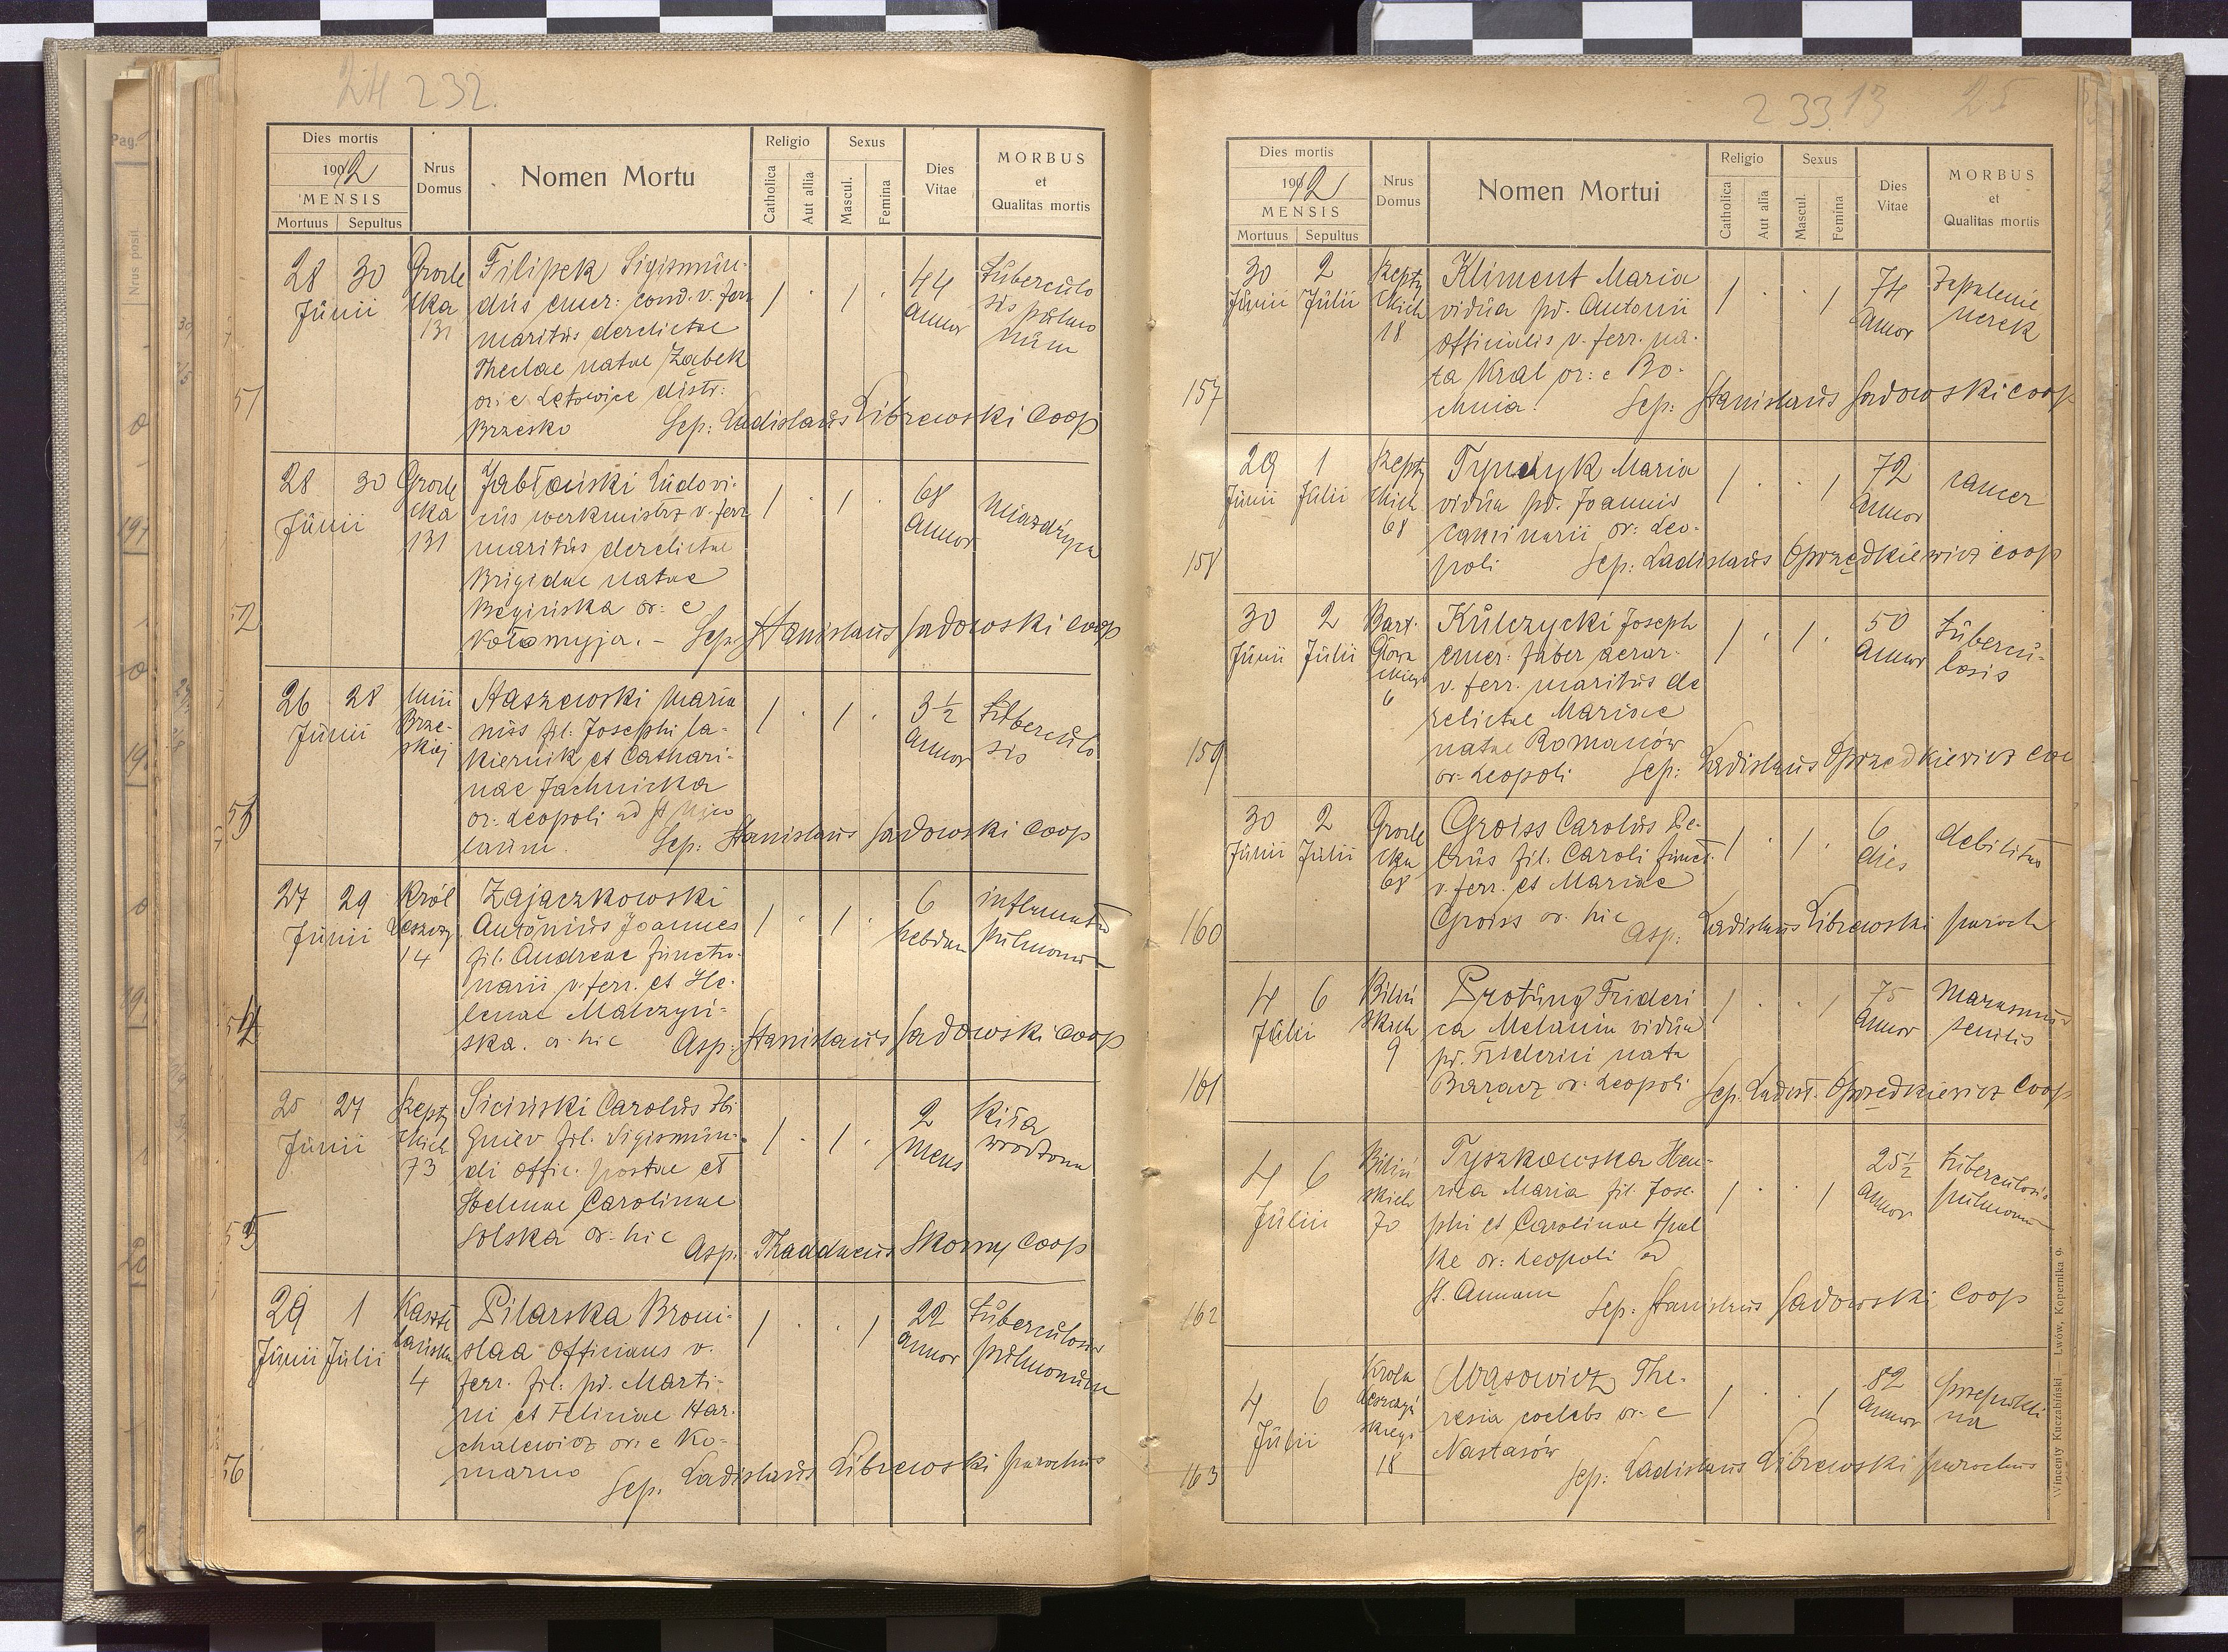 24 232.
Dies mortis
1912
MENSIS
Mortuus Sepultus
Nrus Domus
Nomen Mortu
Religio
Catholica
Aut allia
Sexus
Mascul.
Femina
Dies Vitae
MORBUS
et
Qualitas mortis
51
28 30
Junii
Grode
cka
131
Filipek Sigismun-
dus emer: cond. v. ferr
maritus derelictae
Theclae natae Ząbek
or: e Łętowice distr:
Brzesko Sep: Ladislaus Librewski coop
1 . 1 .
44
annor
tuberculo
sis pulmo
num
52
28 30
Junii
Grode
cka
131
Jabłoński Ludovi-
cus werkmistrz v. ferr
maritus derelictae
Brigidae natae
Begińska or: e
Kołomyja. - Sep: Stanislaus Sadowski coop
1 . 1 .
68
annor
miazdżyca
53
26 28
Junii
Unii
Brze-
skiej
Staszewski Maria
nus fil: Josephi la-
kiernik et Cathari-
nae Jachnicka
or: Leopoli ad St Nico
laum. Sep: Stanislaus Sadowski coop
1 . 1 .
3½
annor
tuberculo
sis
54
27 29
Junii
Król
Leszczy
14
Zajączkowski
Antonius Joannes
fil. Andreae functio-
narii v. ferr. et He-
lenae Malczyń-
ska. or. hic Asp: Stanislaus Sadowski coop
1 . 1 .
6
hebdom
inflamatio
pulmonum
55
25 27
Junii
Szepty
ckich
73
Siciński Carolus Zbi
gniev fil. Sigismun-
di offic. postae et
Helenae Carolinae
Solska or. hic Asp: Thaddaeus Skorny coop
1 . 1 .
2
mens
Kiła
wrodzona
56
29 1
Junii Julii
Kaszte
lańska
4
Pilarska Broni-
slaa officians v.
ferr. fil: pd. Marti-
ni et Feliciae Har-
chalewicz or: e Ko-
marno Sep. Ladislaus Librewski parochus
1 . . 1
22
annor
tuberculosis
pulmonum
233 13 25
Dies mortis
1912
MENSIS
Mortuus Sepultus
Nrus Domus
Nomen Mortui
Religio
Catholica
Aut alia
Sexus
Mascul.
Femina
Dies Vitae
MORBUS
et
Qualitas mortis
157
30 2
Junii Julii
Szepty
ckich
18
Kliment Maria
vidua pd. Antonii
officialis v. ferr. na-
ta Kral or: e Bo-
chnia. Sep: Stanislaus Sadowski coop
1 . . 1
74
annor
zapalenie
nerek
158
29 1
Junii Julii
Szepty
ckich
68
Tyndyk Maria
vidua pd. Joannis
caminarii or: Leo-
poli Sep: Ladislaus Oprzędkiewicz coop
1 . . 1
72
annor
cancer
159
30 2
Junii Julii
Bart.
Głowa
ckiego
6
Kulczycki Joseph
emer: faber aerar.
v. ferr. maritus de
relictae Mariae
natae Romanów
or: Leopoli Sep: Ladislaus Oprzędkiewicz coo
1 . 1 .
50
annor
tubercu-
losis
160
30 2
Junii Julii
Grode
cka
68
Groiss Carolus Pe-
trus fil. Caroli funct.
v. ferr. et Mariae
Groiss or. hic Asp: Ladislaus Librewski paroch
1 . 1 .
6
dies
debilitas
161
4 6
Julii
Biliń
skich
9
Protung Frideri
ca Melania vidua
pd. Friderici nata
Barącz or: Leopoli Sep. Ladisl. Oprzędkiewicz coop
1 . . 1
75
annor
Marasmus
senilis
162
4 6
Julii
Biliń
skich
70
Tyszkowska Hen-
rica Maria fil. Jose-
phi et Carolinae Hal
ke or: Leopoli ad
St. Annam Sep: Stanislaus Sadowski coop
1 . . 1
25½
annor
tuberculosis
pulmonum
163
4 6
Julii
Króla
Leszczyń
skiego
18
Wąsowicz The-
resia coelebs or: e
Nastasów
Sep: Ladislaus Librewski parochus
1 . . 1
82
annor
przepukli
na
Wincenty Kuczabiński — Lwów, Kopernika 9.